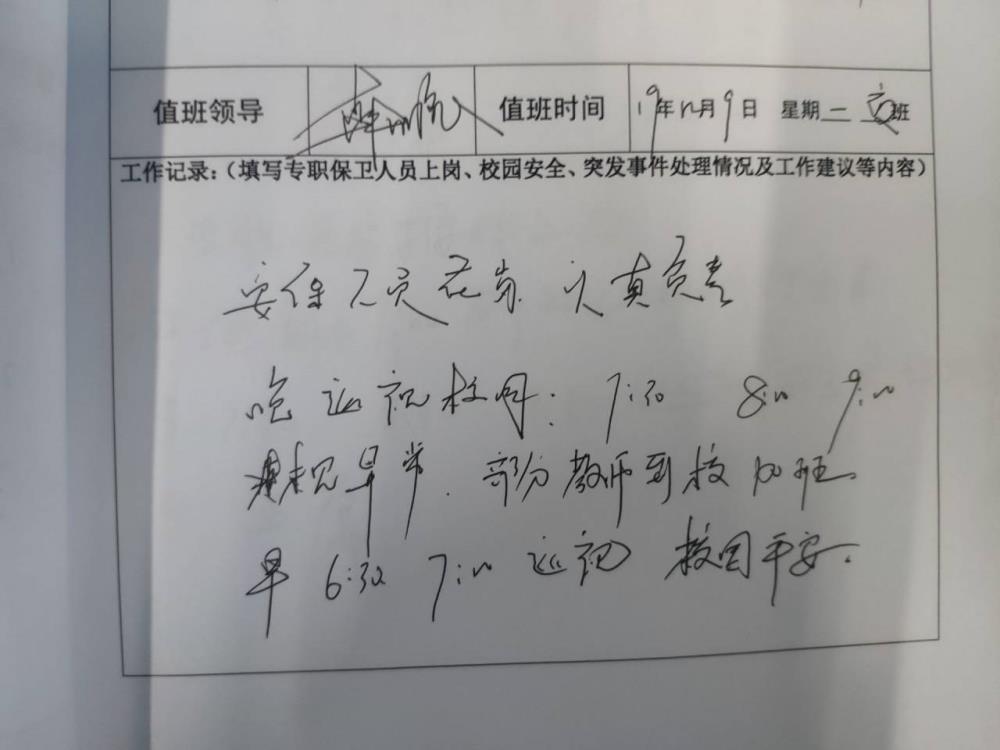 值班领导 值班时间 19年12月9日 星期一 夜班
工作记录:(填写专职保卫人员上岗、校园安全、突发事件处理情况及工作建议等内容)
安保人员在岗 认真负责
晚巡视校园: 7:30 8:00 9:00
未见异常. 部分教师到校加班.
早 6:30 7:00 巡视 校园平安.